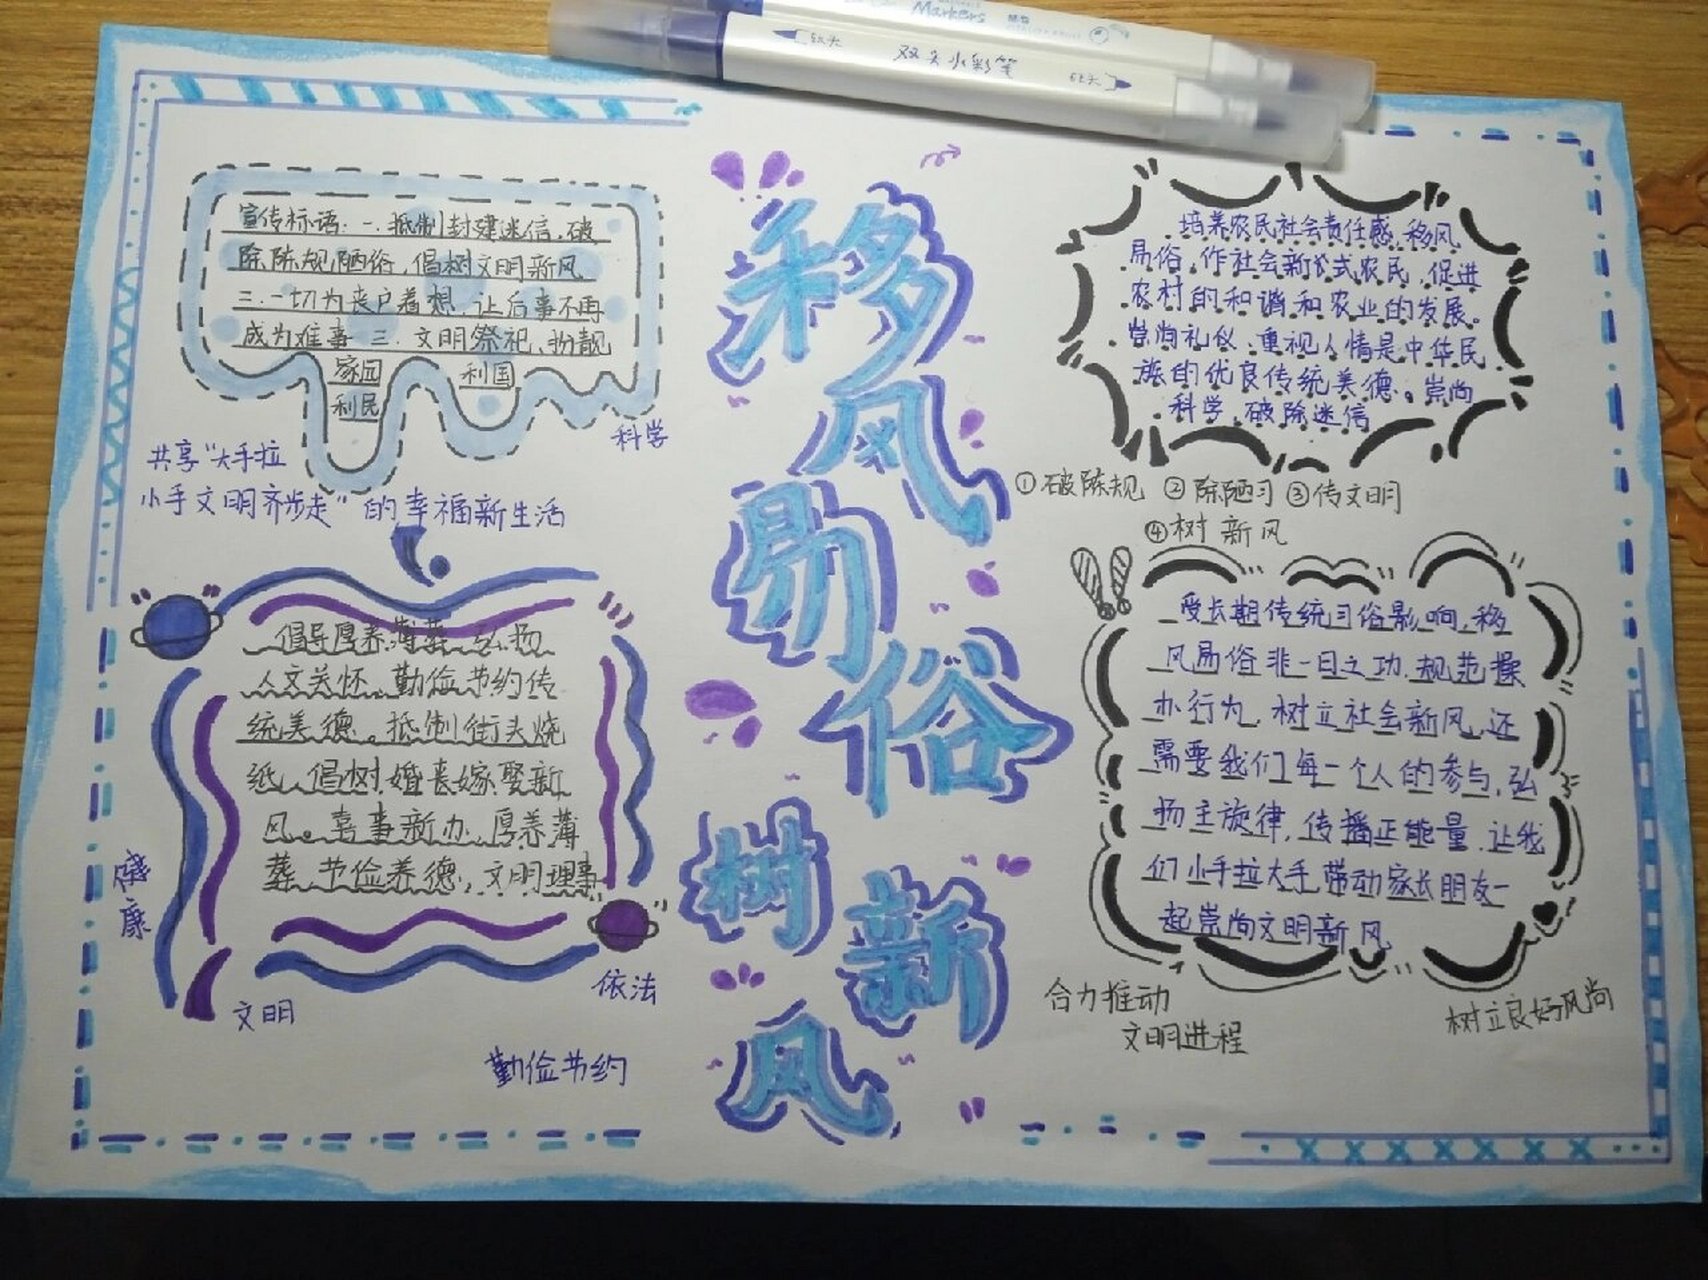 Markers
双头水彩笔
移风易俗
树新风
宣传标语:一.抵制封建迷信,破
除陈规陋俗,倡树文明新风
三.一切为丧户着想,让后事不再
成为难事 三.文明祭祀、扮靓
家园 利国
利民
科学
共享“大手拉
小手文明齐步走”的幸福新生活
倡导厚养薄葬 弘扬
人文关怀,勤俭节约传
统美德。抵制街头烧
纸,倡树婚丧嫁娶新
风。喜事新办,厚养薄
葬 节俭养德,文明理事
健康
文明
依法
勤俭节约
培养农民社会责任感,移风
易俗,作社会新仪式农民,促进
农村的和谐和农业的发展。
崇尚礼仪、重视人情是中华民
族的优良传统美德。崇尚
科学,破除迷信
①破陈规 ②除陋习 ③传文明
④树新风
受长期传统习俗影响,移
风易俗非一日之功,规范操
办行为,树立社会新风,还
需要我们每一个人的参与,弘
扬主旋律,传播正能量,让我
们小手拉大手,带动家长朋友一
起崇尚文明新风
合力推动
文明进程
树立良好风尚